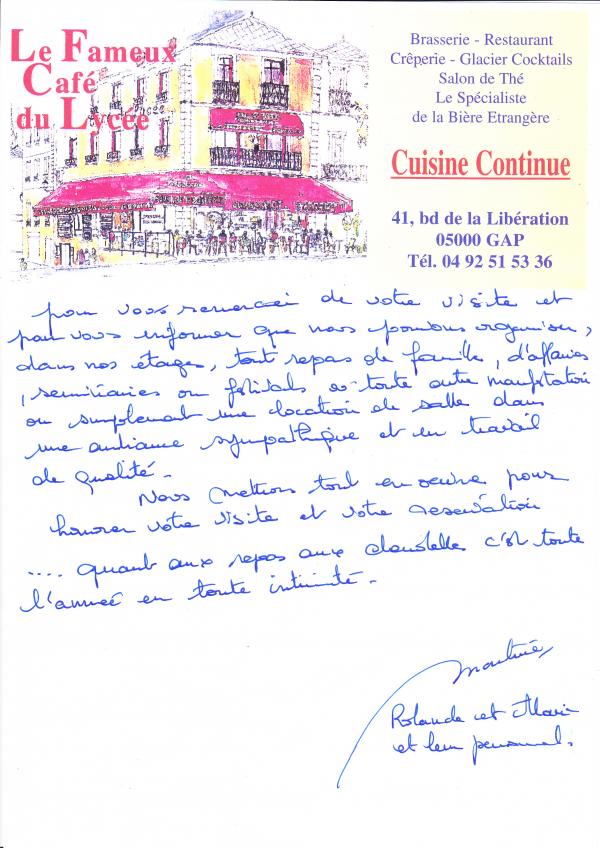 Le Fameux
Café
du Lycée
Brasserie - Restaurant
Crêperie - Glacier Cocktails
Salon de Thé
Le Spécialiste
de la Bière Etrangère
Cuisine Continue
41, bd de la Libération
05000 GAP
Tél. 04 92 51 53 36
pour vous remercier de votre visite et
pour vous informer que nous pouvons organiser,
dans nos étages, tout repas de famille, d'affaires
, séminaires ou festivals et toute autre manifestation
ou simplement une location de salle dans
une ambiance sympathique et un travail
de qualité.
Nous mettons tout en oeuvre pour
honorer votre visite et votre reservation
.... quant aux repas aux chandelles c'est toute
l'année en toute intimité.
Rolande et
et leur personnel.